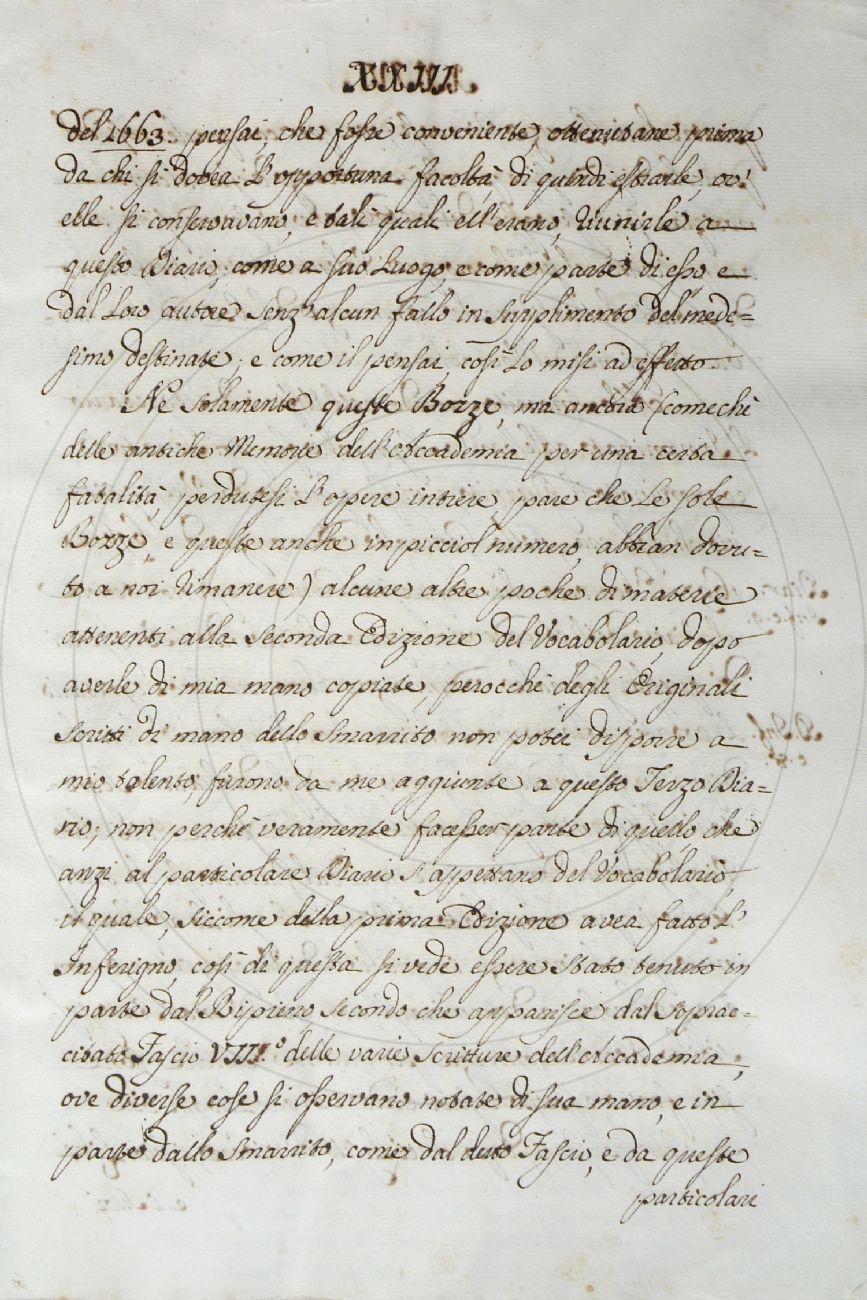 XXIII.
del 1663. pensai, che fosse conveniente, ottenutane prima
da chi si dovea l'opportuna facoltà, di quindi estrarle, ov'
elle si conservavano, e tali quali ell'erano, riunirle a
questo Diario, come a suo luogo, e come parte di esso e
dal loro autore senz'alcun fallo in supplimento del mede=
simo destinate; e come il pensai, così lo misi ad effetto.
Ne solamente queste Bozze, ma ancora (comechè
delle antiche Memorie dell'Accademia per una certa
fatalità, perdutesi l'opere intiere, pare che le sole
Bozze, e queste anche in picciol numero, abbian dovu-
to a noi rimanere) alcune altre poche di materie
attenenti alla seconda Edizione del Vocabolario, dopo
averle di mia mano copiate, perocchè degli Originali
scritti di mano dello Smarrito non potei disporre a
mio talento, furono da me aggiunte a questo Terzo Dia=
rio; non perchè veramente facesser parte di quello che
anzi al particolare Diario s'aspettano del Vocabolario,
il quale, siccome della prima Edizione avea fatto l'
Inferigno, così di questa si vede essere stato tenuto in
parte dal Ripieno secondo che apparisce dal soprac-
citato Fascio VIII.º delle varie scritture dell'Accademia,
ove diverse cose si osservano notate di sua mano, e in
parte dallo Smarrito, come dal detto Fascio, e da queste
particolari